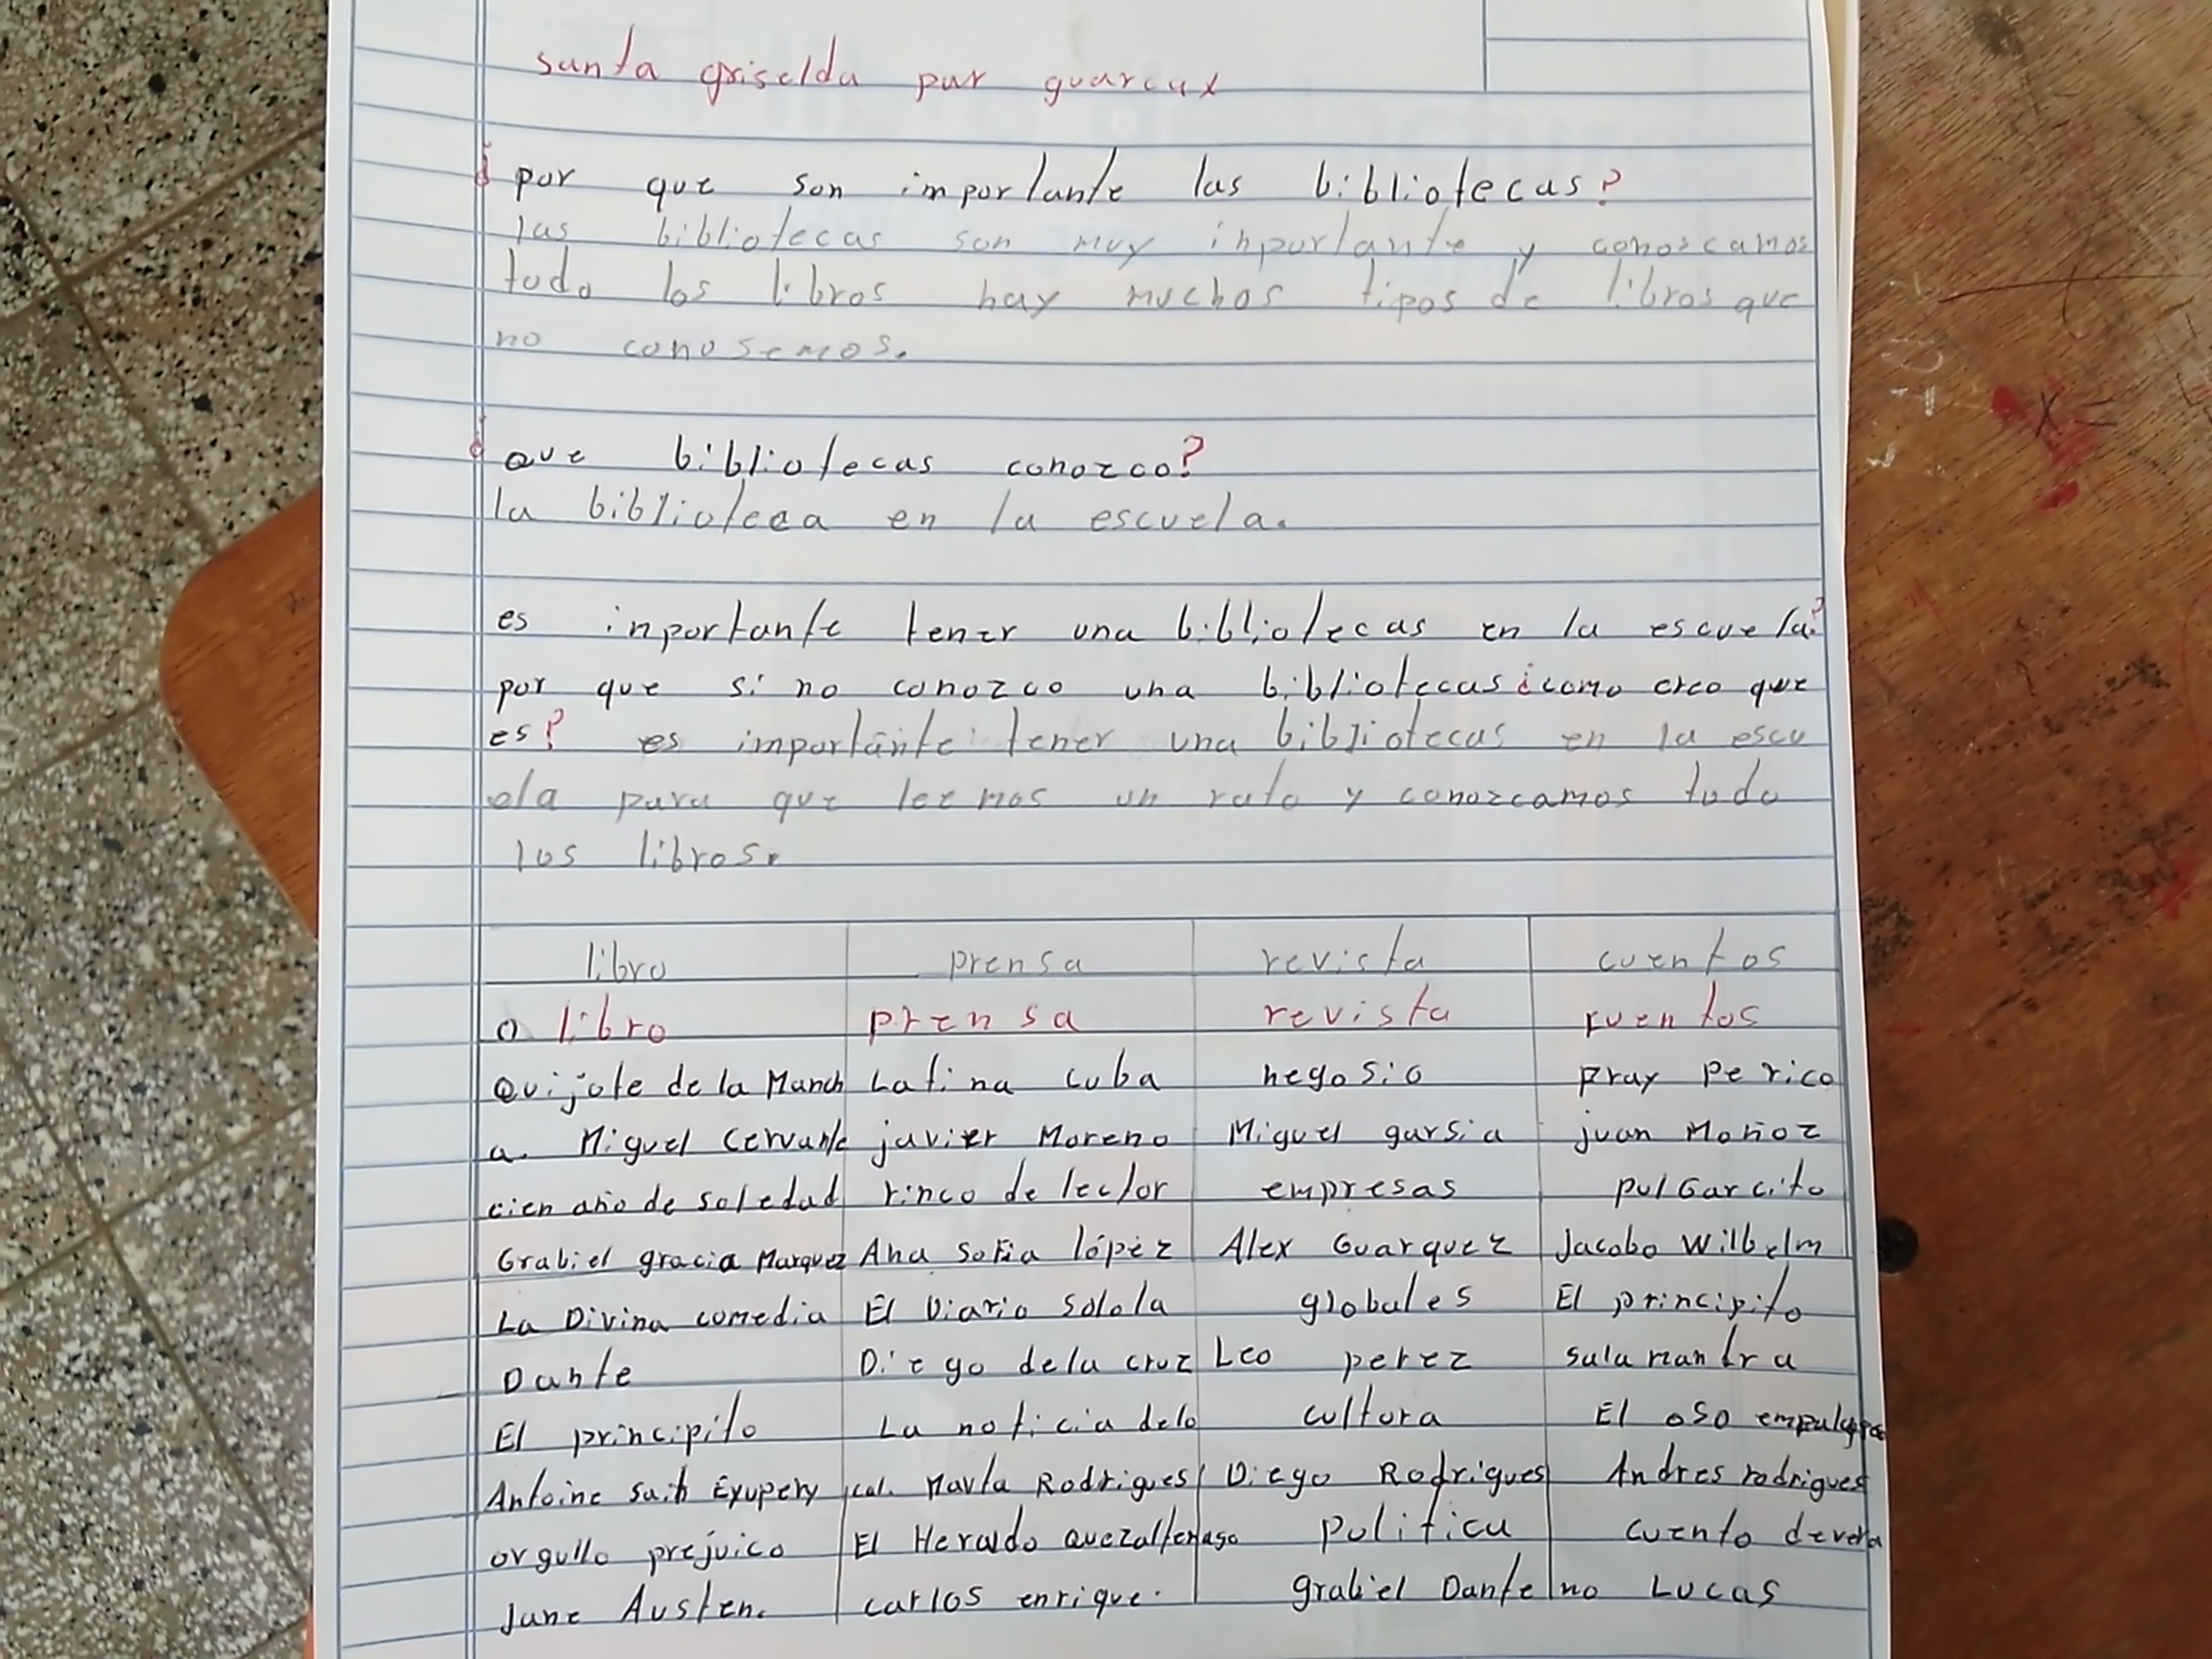 santa griselda par guarcax
¿por que son importante las bibliotecas?
las bibliotecas son muy inportante y conoscamos
todo los libros hay muchos tipos de libros que
no conosemos.
¿que bibliotecas conozco?
la biblioteca en la escuela.
es inportante tener una bibliotecas en la escuela?
por que si no conozco una bibliotecas ¿como creo que
es? es importante tener una bibliotecas en la escu
ela para que leemos un rato y conozcamos todo
los libros.
libro prensa revista cuentos
libro prensa revista cuentos
Quijote de la Manch Latina cuba negosio pray Perico
a. Miguel Cervante javier Moreno Miguel garsia juan Moñoz
cien año de soledad rinco de lector empresas pulGarcito
Grabiel gracia Marquez Ana sofia lópez Alex Guarquez Jacobo Wilbelm
La Divina comedia El Diario Solola globales El principito
Dante Diego dela cruz Leo perez salamandra
El principito La noticia delo cultura El oso
Antoine Saith Exupery cal. Marla Rodrigues Diego Rodrigues Andres rodrigues
orgullo prejuico El Heraldo Quezaltenago politica cuento devera
Jane Austen. carlos enrique. grabiel Dante no Lucas